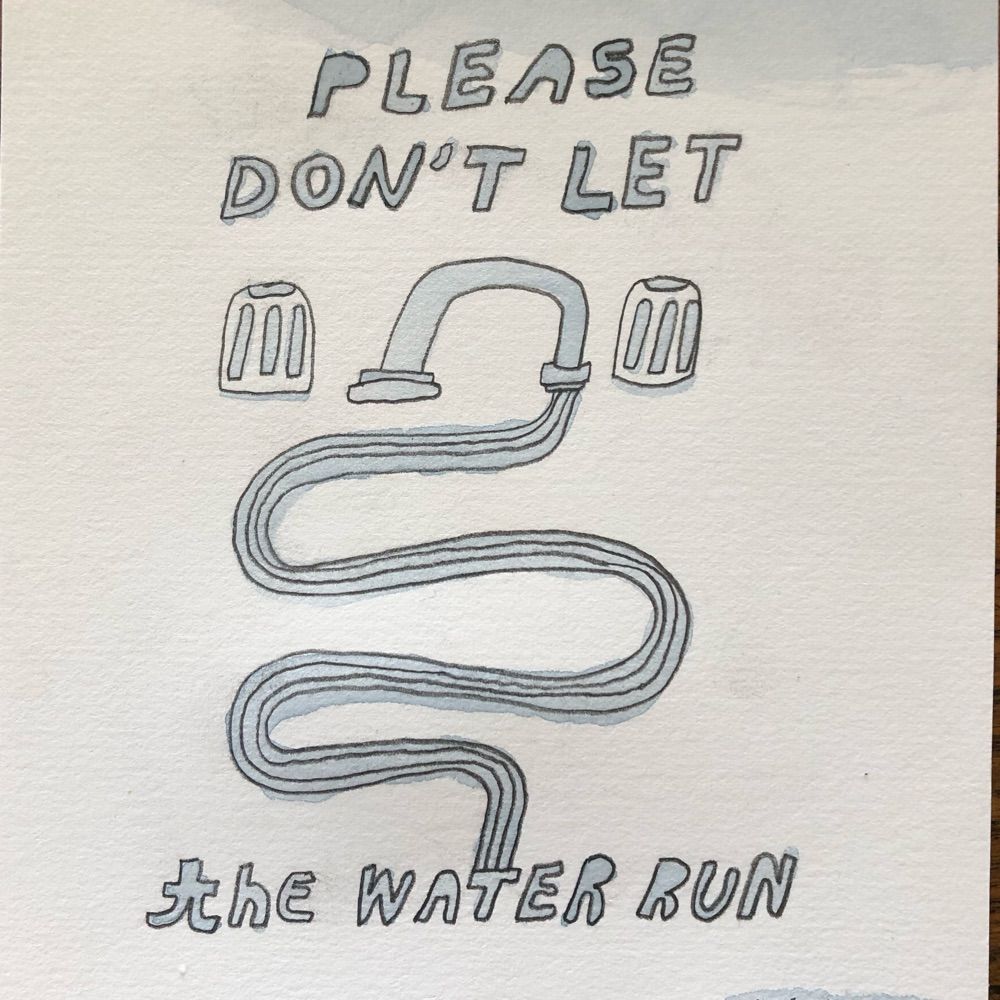 PLEASE
DON'T LET
the WATER RUN